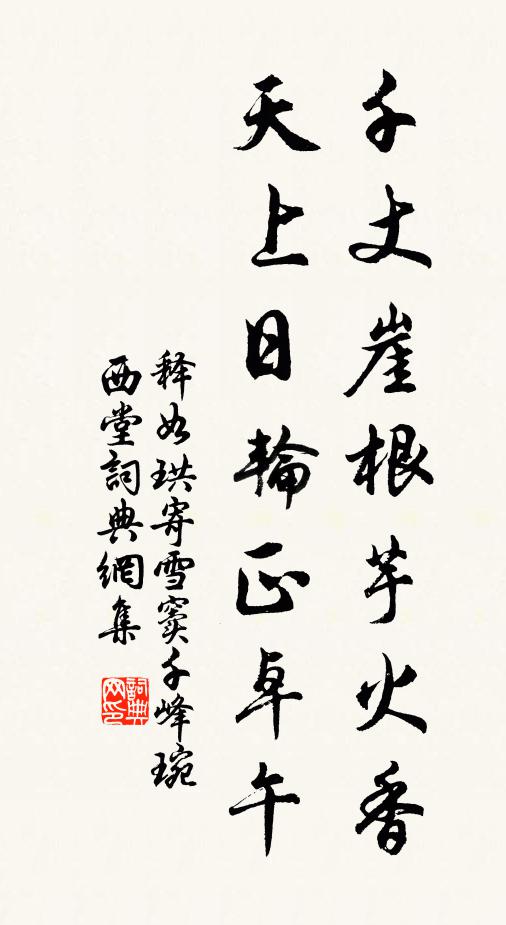 千丈崖根芋火香
天上日輪正卓午
释如珙寄雪窦千峰琬
西堂詞典網集
詞典網印